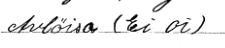 Avlöisa (Ei oi)